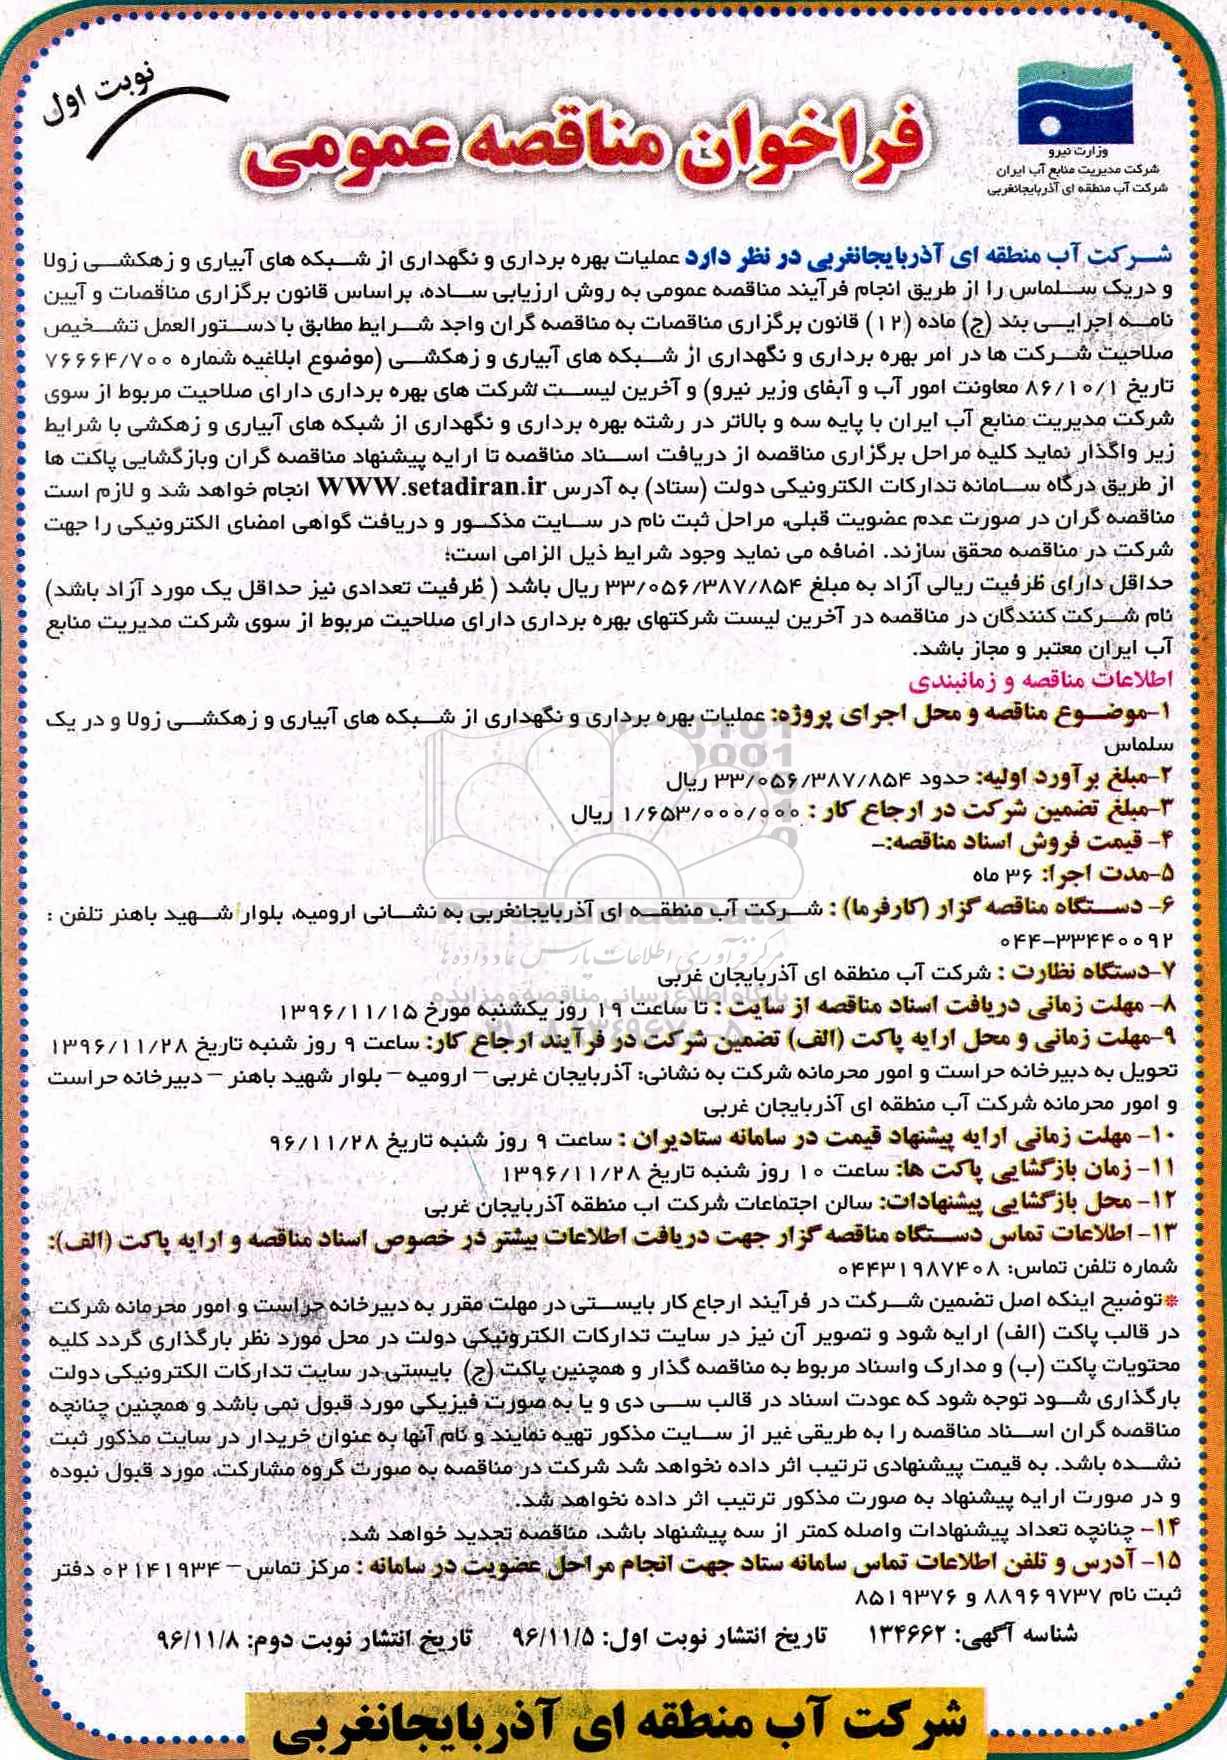 نوبت اول
وزارت نیرو
شرکت مدیریت منابع آب ایران
شرکت آب منطقه ای آذربایجانغربی
فراخوان مناقصه عمومی
شرکت آب منطقه ای آذربایجانغربی در نظر دارد عملیات بهره برداری و نگهداری از شبکه های آبیاری و زهکشی زولا
و دریک سلماس را از طریق انجام فرآیند مناقصه عمومی به روش ارزیابی ساده، براساس قانون برگزاری مناقصات و آیین
نامه اجرایی بند (ج) ماده (۱۲) قانون برگزاری مناقصات به مناقصه گران واجد شرایط مطابق با دستورالعمل تشخیص
صلاحیت شرکت ها در امر بهره برداری و نگهداری از شبکه های آبیاری و زهکشی (موضوع ابلاغیه شماره ۷۶۶۶۴/۷۰۰
تاریخ ۸۶/۱۰/۱ معاونت امور آب و آبفای وزیر نیرو) و آخرین لیست شرکت های بهره برداری دارای صلاحیت مربوط از سوی
شرکت مدیریت منابع آب ایران با پایه سه و بالاتر در رشته بهره برداری و نگهداری از شبکه های آبیاری و زهکشی با شرایط
زیر واگذار نماید کلیه مراحل برگزاری مناقصه از دریافت اسناد مناقصه تا ارایه پیشنهاد مناقصه گران وبازگشایی پاکت ها
از طریق درگاه سامانه تدارکات الکترونیکی دولت (ستاد) به آدرس WWW.setadiran.ir انجام خواهد شد و لازم است
مناقصه گران در صورت عدم عضویت قبلی، مراحل ثبت نام در سایت مذکور و دریافت گواهی امضای الکترونیکی را جهت
شرکت در مناقصه محقق سازند. اضافه می نماید وجود شرایط ذیل الزامی است؛
حداقل دارای ظرفیت ریالی آزاد به مبلغ ۳۳/۰۵۶/۳۸۷/۸۵۴ ریال باشد ( ظرفیت تعدادی نیز حداقل یک مورد آزاد باشد)
نام شرکت کنندگان در مناقصه در آخرین لیست شرکتهای بهره برداری دارای صلاحیت مربوط از سوی شرکت مدیریت منابع
آب ایران معتبر و مجاز باشد.
اطلاعات مناقصه و زمانبندی
۱-موضوع مناقصه و محل اجرای پروژه: عملیات بهره برداری و نگهداری از شبکه های آبیاری و زهکشی زولا و در یک
سلماس
۲-مبلغ برآورد اولیه: حدود ۳۳/۰۵۶/۳۸۷/۸۵۴ ریال
۳-مبلغ تضمین شرکت در ارجاع کار : ۱/۶۵۳/۰۰۰/۰۰۰ ریال
۴- قیمت فروش اسناد مناقصه:-
۵-مدت اجرا: ۳۶ ماه
۶- دستگاه مناقصه گزار (کارفرما) : شرکت آب منطقه ای آذربایجانغربی به نشانی ارومیه، بلوار شهید باهنر تلفن :
۰۴۴-۳۳۴۴۰۰۹۲
۷-دستگاه نظارت : شرکت آب منطقه ای آذربایجان غربی
۸- مهلت زمانی دریافت اسناد مناقصه از سایت : تا ساعت ۱۹ روز یکشنبه مورخ ۱۳۹۶/۱۱/۱۵
۹-مهلت زمانی و محل ارایه پاکت (الف) تضمین شرکت در فرآیند ارجاع کار: ساعت ۹ روز شنبه تاریخ ۱۳۹۶/۱۱/۲۸
تحویل به دبیرخانه حراست و امور محرمانه شرکت به نشانی: آذربایجان غربی – ارومیه – بلوار شهید باهنر – دبیرخانه حراست
و امور محرمانه شرکت آب منطقه ای آذربایجان غربی
۱۰- مهلت زمانی ارایه پیشنهاد قیمت در سامانه ستادیران : ساعت ۹ روز شنبه تاریخ ۹۶/۱۱/۲۸
۱۱- زمان بازگشایی پاکت ها: ساعت ۱۰ روز شنبه تاریخ ۱۳۹۶/۱۱/۲۸
۱۲- محل بازگشایی پیشنهادات: سالن اجتماعات شرکت اب منطقه آذربایجان غربی
۱۳- اطلاعات تماس دستگاه مناقصه گزار جهت دریافت اطلاعات بیشتر در خصوص اسناد مناقصه و ارایه پاکت (الف):
شماره تلفن تماس: ۰۴۴۳۱۹۸۷۴۰۸
*توضیح اینکه اصل تضمین شرکت در فرآیند ارجاع کار بایستی در مهلت مقرر به دبیرخانه حراست و امور محرمانه شرکت
در قالب پاکت (الف) ارایه شود و تصویر آن نیز در سایت تدارکات الکترونیکی دولت در محل مورد نظر بارگذاری گردد کلیه
محتویات پاکت (ب) و مدارک واسناد مربوط به مناقصه گذار و همچنین پاکت (ج) بایستی در سایت تدارکات الکترونیکی دولت
بارگذاری شود توجه شود که عودت اسناد در قالب سی دی و یا به صورت فیزیکی مورد قبول نمی باشد و همچنین چنانچه
مناقصه گران اسناد مناقصه را به طریقی غیر از سایت مذکور تهیه نمایند و نام آنها به عنوان خریدار در سایت مذکور ثبت
نشده باشد. به قیمت پیشنهادی ترتیب اثر داده نخواهد شد شرکت در مناقصه به صورت گروه مشارکت، مورد قبول نبوده
و در صورت ارایه پیشنهاد به صورت مذکور ترتیب اثر داده نخواهد شد.
۱۴- چنانچه تعداد پیشنهادات واصله کمتر از سه پیشنهاد باشد، مناقصه تجدید خواهد شد.
۱۵- آدرس و تلفن اطلاعات تماس سامانه ستاد جهت انجام مراحل عضویت در سامانه : مرکز تماس – ۰۲۱۴۱۹۳۴ دفتر
ثبت نام ۸۸۹۶۹۷۳۷ و ۸۵۱۹۳۷۶
شناسه آگهی: ۱۳۴۶۶۲ تاریخ انتشار نوبت اول: ۹۶/۱۱/۵ تاریخ انتشار نوبت دوم: ۹۶/۱۱/۸
شرکت آب منطقه ای آذربایجانغربی